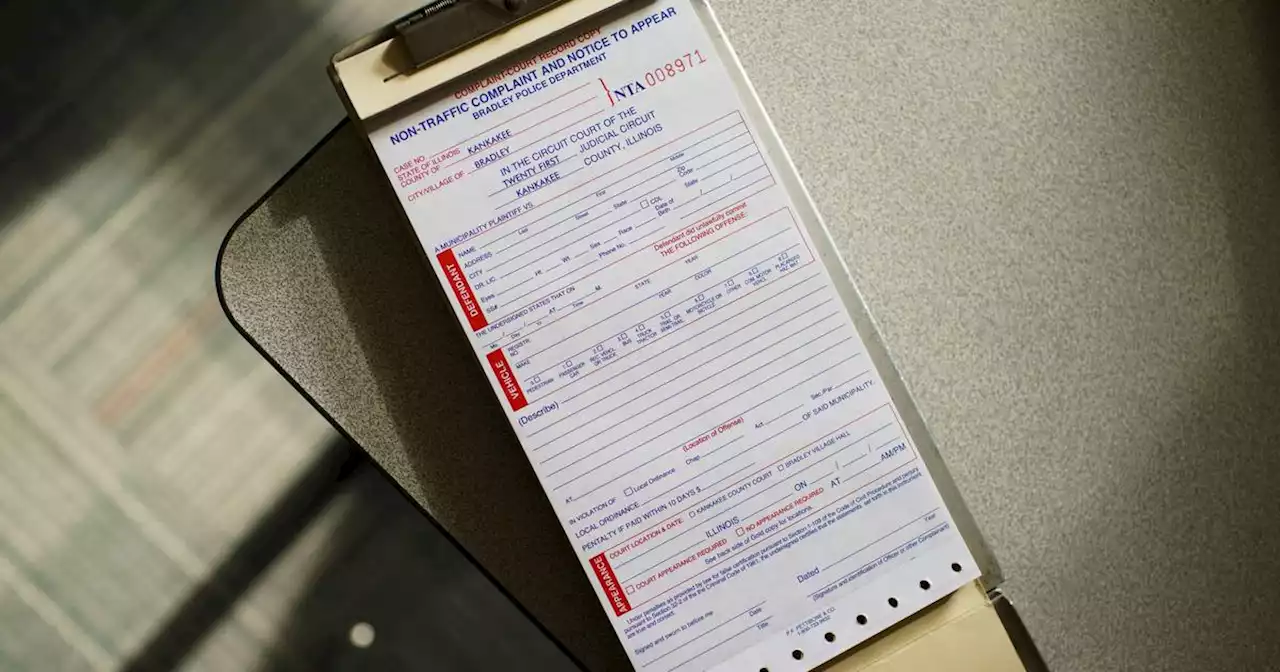 COMPLAINT-COURT RECORD COPY
NON-TRAFFIC COMPLAINT AND NOTICE TO APPEAR
BRADLEY POLICE DEPARTMENT
NTA 008971
CASE NO.
STATE OF ILLINOIS
COUNTY OF KANKAKEE
CITY/VILLAGE OF BRADLEY
IN THE CIRCUIT COURT OF THE
TWENTY FIRST JUDICIAL CIRCUIT
KANKAKEE COUNTY, ILLINOIS
A MUNICIPALITY PLAINTIFF VS.
DEFENDANT
NAME Last First Middle
ADDRESS Street State Zip Code
CITY
DR. LIC. CDL State
Eyes Ht. Wt. Sex Race Date of Birth / /
SS# Phone No.
Defendant did unlawfully commit
THE UNDERSIGNED STATES THAT ON THE FOLLOWING OFFENSE:
Mo. / Day / Yr. AT Time M.
VEHICLE
REGISTR. NO. STATE YEAR
MAKE YEAR COLOR
PEDESTRIAN
PASSENGER CAR
REC. VEHCL. OR TRUCK
BUS
TRUCK TRACTOR
TRAIL OR SEMI TRAIL
MOTORCYCLE OR MOTCYCLE
OTHER
COM. MOTOR VEHCL
PLACARDED HAZ. MAT.
(Describe)
AT (Location of Offense)
IN VIOLATION OF Local Ordinance Chap. Act Sec./Par.
LOCAL ORDINANCE OF SAID MUNICIPALITY.
PENALTY IF PAID WITHIN 10 DAYS $
APPEARANCE
COURT LOCATION & DATE: KANKAKEE COUNTY COURT BRADLEY VILLAGE HALL
ILLINOIS ON / / AT AM/PM
COURT APPEARANCE REQUIRED NO APPEARANCE REQUIRED
See back side of Gold copy for locations.
Under penalties as provided by law for false certification pursuant to Section 1-109 of the Code of Civil Procedure and perjury
pursuant to Section 32-2 of the Criminal Code of 1961, the undersigned certifies that the statements set forth in this instrument
are true and correct.
Dated Year
(Signature and identification of Officer or other Complainant)
Signed and sworn to before me Date
Title
P.F. PETTIBONE & CO.